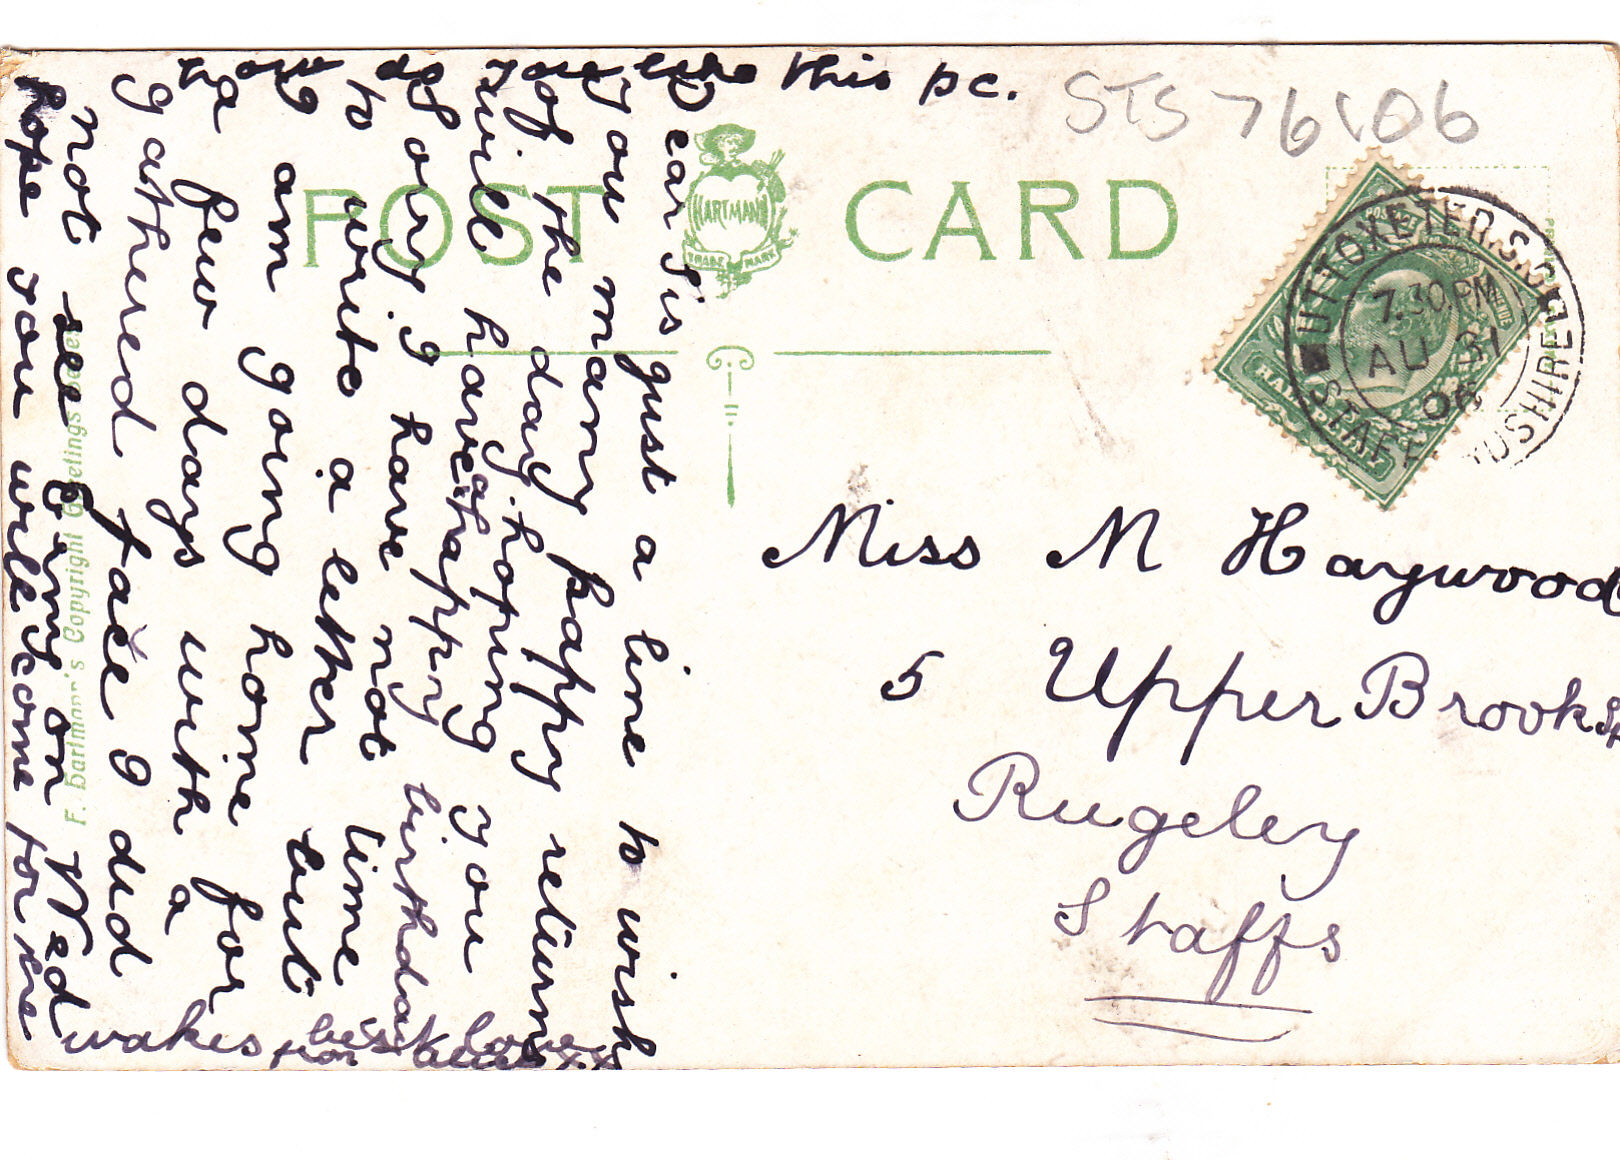 How do you like this pc.
STS 76106
POST CARD
HARTMANN
TRADE MARK
Dear Sis just a line to wish
you many happy returns
of the day hoping you
will have a happy birthday
Glory I have not time
to write a letter but
I am going home for
a few days with a
gathered face I did
not see Jenny on Wed
hope you will come for the
wakes best love
from xxx
F. Hartmann's Copyright Greetings Series
UTTOXETER S.O.
7.30 PM
AU 31
06
STAFFORDSHIRE
POSTAGE
REVENUE
HALF PENNY
Miss M Haywood
5 Upper Brook St
Rugeley
Staffs